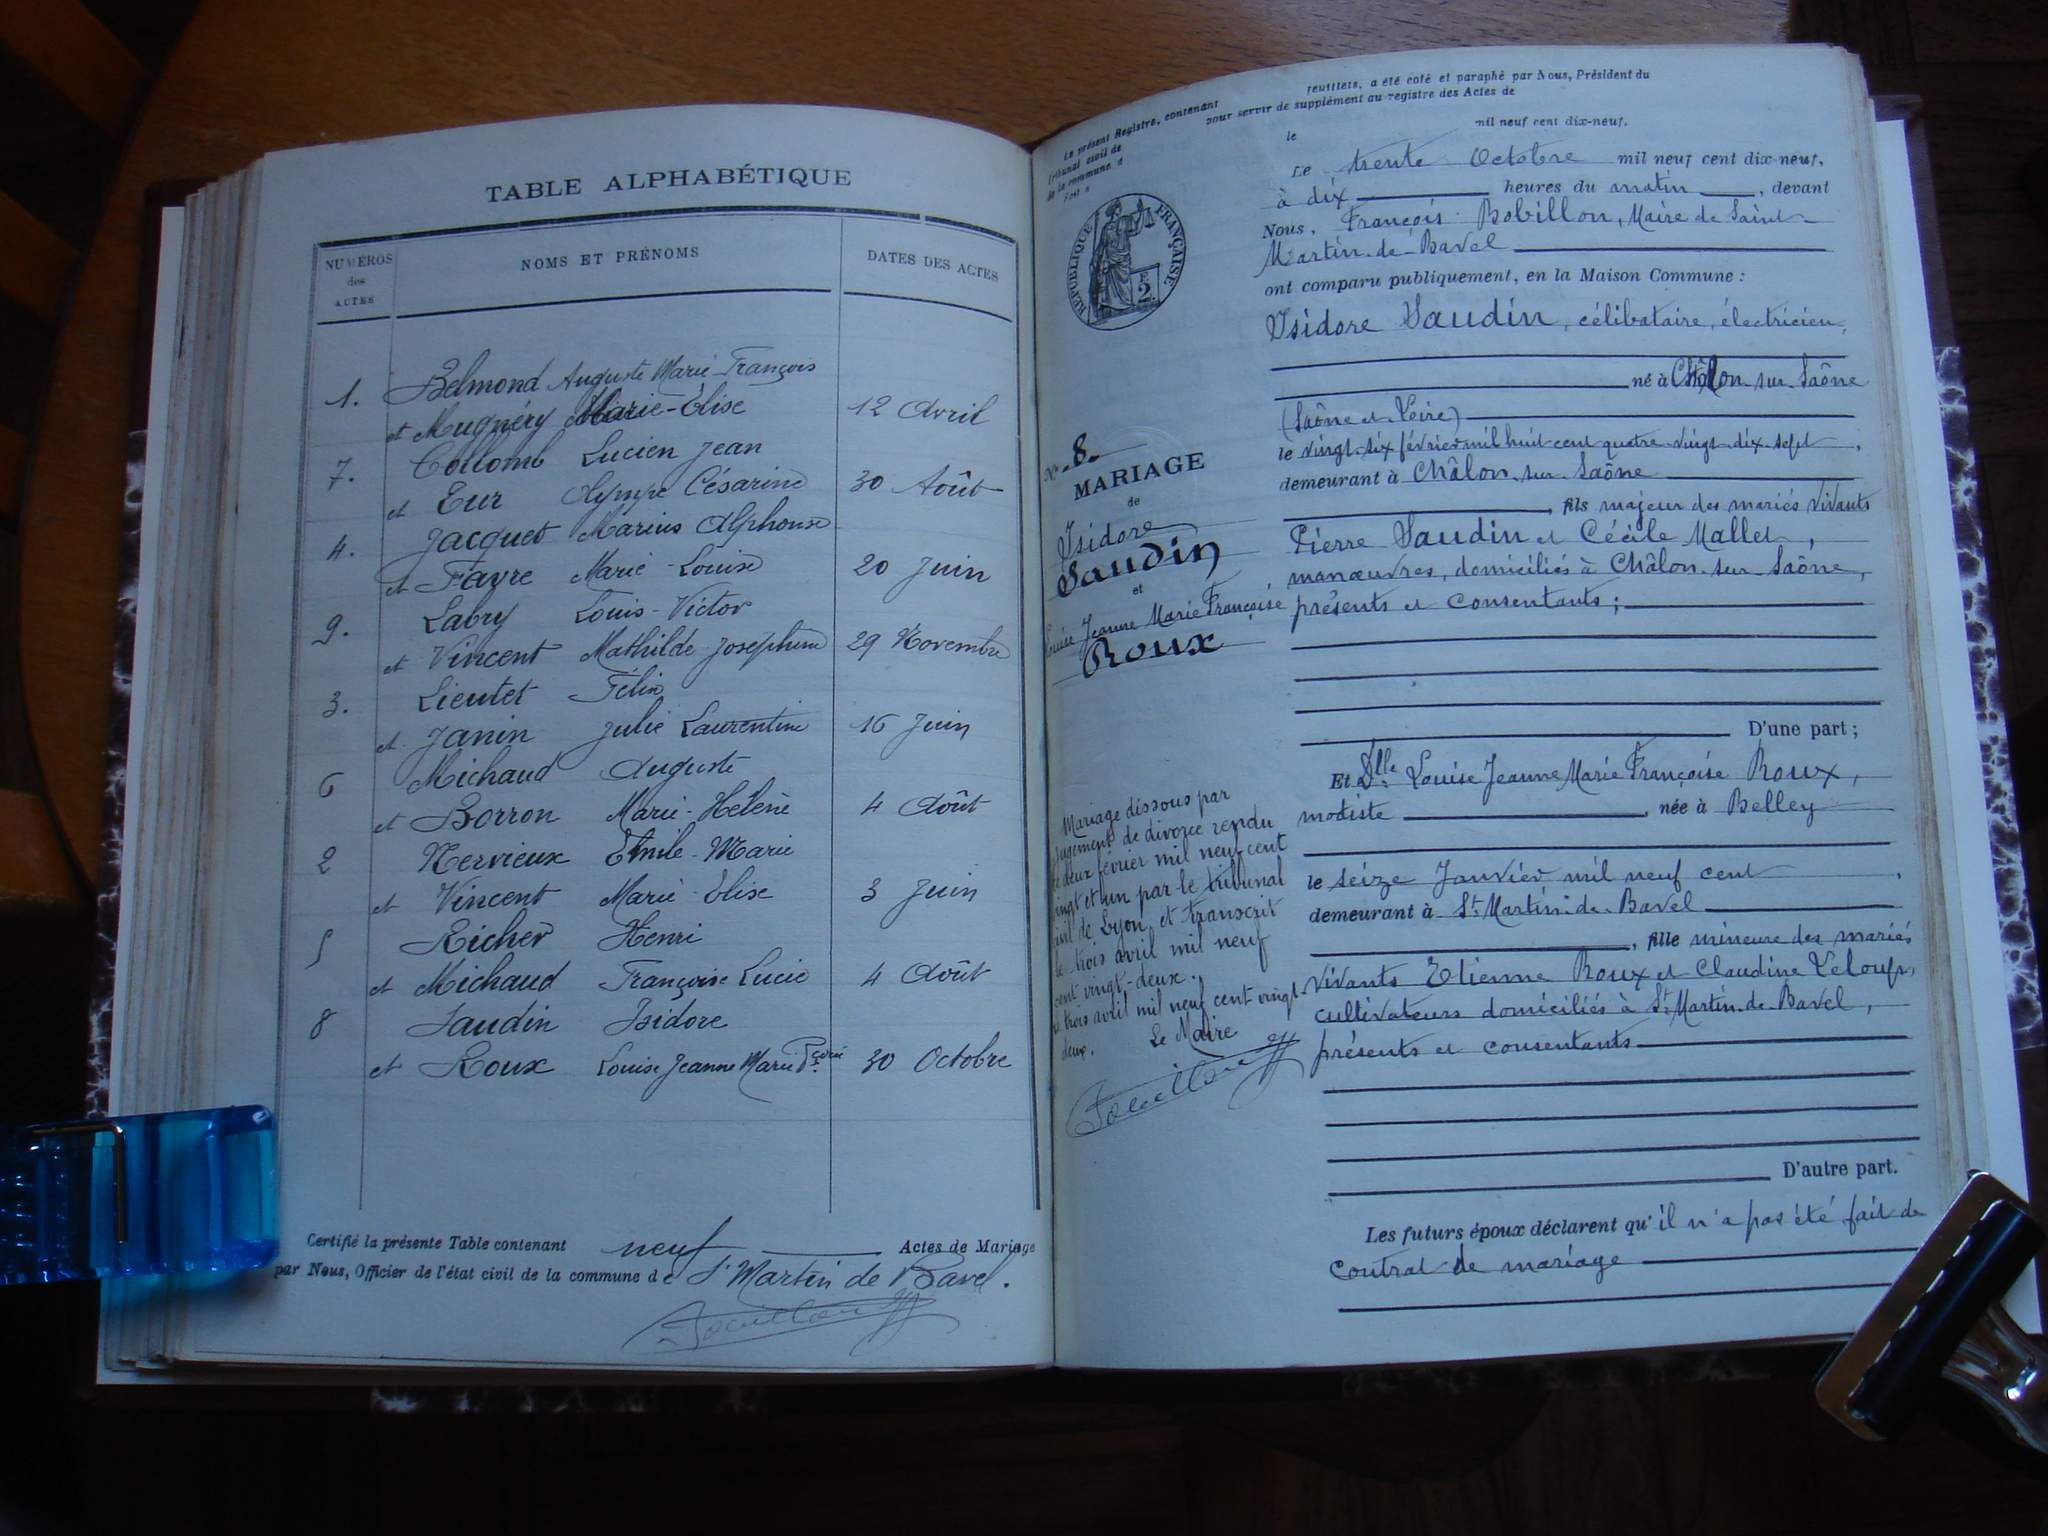 TABLE ALPHABÉTIQUE
NUMÉROS
des
ACTES
NOMS ET PRÉNOMS
DATES DES ACTES
1. Belmond Auguste Marie-François
et Mugnéry Marie-Élise 12 Avril
7. Collomb Lucien Jean
et Eur Olympe Césarine 30 Août
4. Jacquet Marius Alphonse
et Favre Marie-Louise 20 Juin
9. Labry Louis-Victor
et Vincent Mathilde Joséphine 29 Novembre
3. Lieutet Félix
et Janin Julie Laurentine 16 Juin
6 Michaud Auguste
et Borron Marie-Hélène 4 Août
2 Nervieux Emile-Marie
et Vincent Marie-Elise 3 Juin
5 Richer Henri
et Michaud Françoise Lucie 4 Août
8 Saudin Isidore
et Roux Louise Jeanne Marie 30 Octobre
Certifié la présente Table contenant neuf Actes de Mariage
par Nous, Officier de l'état civil de la commune de St Martin de Bavel.
Le présent Registre, contenant feuillets, a été coté et paraphé par Nous, Président du
Tribunal civil de pour servir de supplément au registre des Actes de
de la commune d
Fait à le mil neuf cent dix-neuf.
RÉPUBLIQUE FRANÇAISE
2
Le trente Octobre mil neuf cent dix-neuf,
à dix heures du matin, devant
Nous, François Bobillon, Maire de Saint-
Martin-de-Bavel
ont comparu publiquement, en la Maison Commune :
Isidore Saudin, célibataire, électricien,
né à Châlon-sur-Saône
(Saône et Loire)
le vingt-six février mil huit cent quatre-vingt-dix-sept,
demeurant à Châlon-sur-Saône
, fils majeur des mariés vivants
Pierre Saudin et Cécile Mallet,
manœuvres, domiciliés à Châlon-sur-Saône,
présents et consentants;
D'une part;
Et Dlle Louise Jeanne Marie Françoise Roux,
modiste, née à Belley
le seize Janvier mil neuf cent,
demeurant à St Martin-de-Bavel
, fille mineure des mariés
vivants Etienne Roux et Claudine Veloup,
cultivateurs domiciliés à St Martin-de-Bavel,
présents et consentants
D'autre part.
Les futurs époux déclarent qu'il n'a pas été fait de
contrat de mariage
N° 8.
MARIAGE
de
Isidore
Saudin
et
Louise Jeanne Marie Françoise
Roux
Mariage dissous par
jugement de divorce rendu
le deux février mil neuf cent
vingt et un par le tribunal
civil de Lyon et transcrit
le trois avril mil neuf
cent vingt-deux.
Le trois avril mil neuf cent vingt-
deux. Le Maire